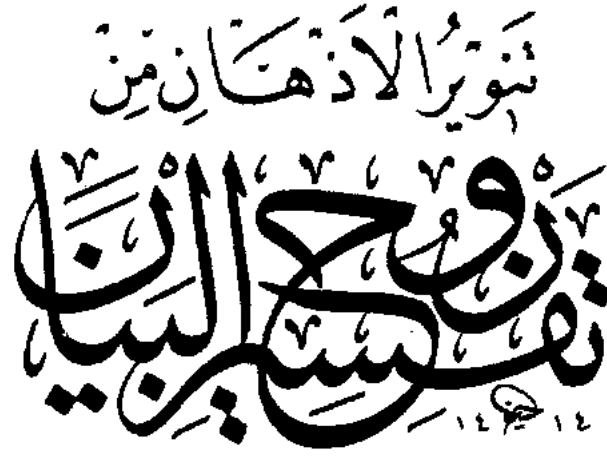 تَنْوِيرُ الْأَذْهَانِ مِنْ
تفسير روح البيان
١٤ ١٤